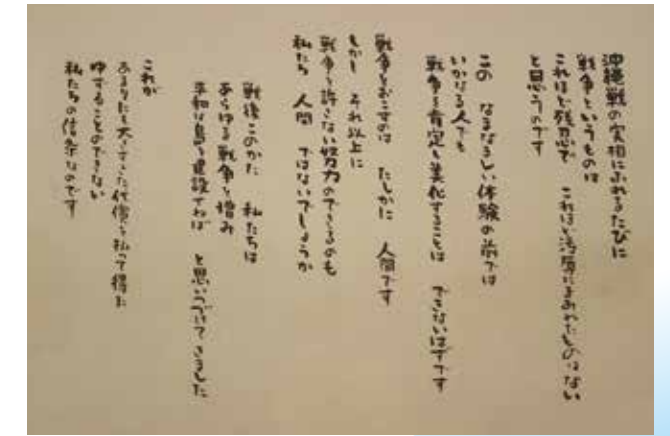 沖縄戦の実相にふれるたびに
戦争というものは
これほど残忍で これほど汚辱にまみれたものはない
と思うのです
この なまなましい体験の前では
いかなる人でも
戦争を肯定し美化することは できないはずです
戦争をおこすのは たしかに 人間です
しかし それ以上に
戦争を許さない努力のできるのも
私たち 人間 ではないでしょうか
戦後このかた 私たちは
あらゆる戦争を憎み
平和な島を建設せねば と思いつづけてきました
これが
あまりにも大きすぎた代償を払って得た
ゆずることのできない
私たちの信条なのです